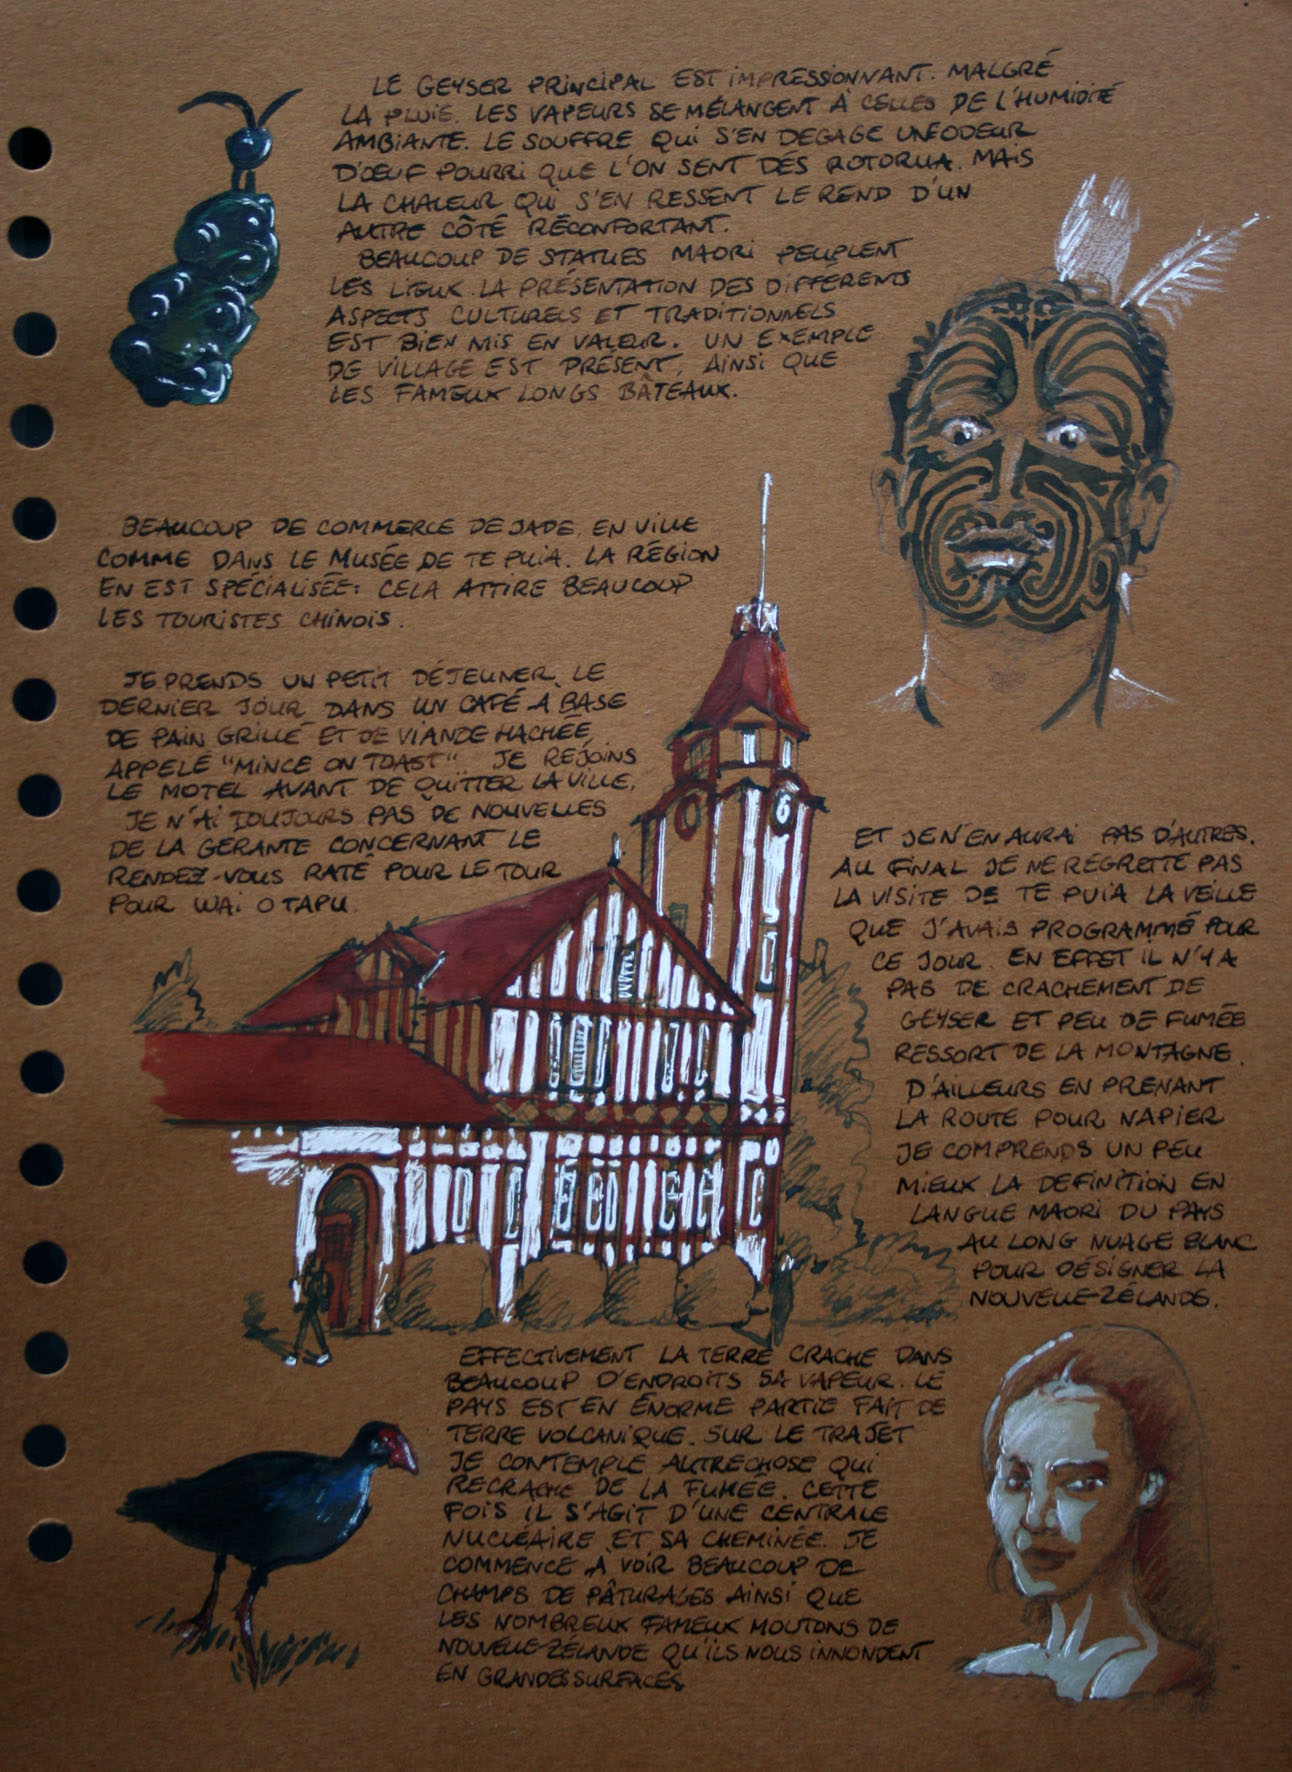 LE GEYSER PRINCIPAL EST IMPRESSIONNANT. MALGRÉ
LA PLUIE. LES VAPEURS SE MÉLANGENT À CELLES DE L'HUMIDITÉ
AMBIANTE. LE SOUFFRE QUI S'EN DEGAGE UNE ODEUR
D'ŒUF POURRI QUE L'ON SENT DÉS ROTORUA. MAIS
LA CHALEUR QUI S'EN RESSENT LE REND D'UN
AUTRE CÔTÉ RÉCONFORTANT.
BEAUCOUP DE STATUES MAORI PEUPLENT
LES LIEUX. LA PRÉSENTATION DES DIFFÉRENTS
ASPECTS CULTURELS ET TRADITIONNELS
EST BIEN MIS EN VALEUR. UN EXEMPLE
DE VILLAGE EST PRÉSENT, AINSI QUE
LES FAMEUX LONGS BÂTEAUX.
BEAUCOUP DE COMMERCE DE JADE, EN VILLE
COMME DANS LE MUSÉE DE TE PUIA. LA RÉGION
EN EST SPÉCIALISÉE: CELA ATTIRE BEAUCOUP
LES TOURISTES CHINOIS.
JE PRENDS UN PETIT DÉJEUNER, LE
DERNIER JOUR DANS UN CAFÉ A BASE
DE PAIN GRILLÉ ET DE VIANDE HACHÉE,
APPELÉ "MINCE ON TOAST". JE REJOINS
LE MOTEL AVANT DE QUITTER LA VILLE,
JE N'AI TOUJOURS PAS DE NOUVELLES
DE LA GÉRANTE CONCERNANT LE
RENDEZ-VOUS RATÉ POUR LE TOUR
POUR WAI O TAPU.
ET JE N'EN AURAI PAS D'AUTRES.
AU FINAL JE NE REGRETTE PAS
LA VISITE DE TE PUIA LA VEILLE
QUE J'AVAIS PROGRAMMÉ POUR
CE JOUR. EN EFFET IL N'Y A
PAS DE CRACHEMENT DE
GEYSER ET PEU DE FUMÉE
RESSORT DE LA MONTAGNE.
D'AILLEURS EN PRENANT
LA ROUTE POUR NAPIER
JE COMPRENDS UN PEU
MIEUX LA DEFINITION EN
LANGUE MAORI DU PAYS
AU LONG NUAGE BLANC
POUR DÉSIGNER LA
NOUVELLE-ZÉLANDE.
EFFECTIVEMENT LA TERRE CRACHE DANS
BEAUCOUP D'ENDROITS SA VAPEUR. LE
PAYS EST EN ÉNORME PARTIE FAIT DE
TERRE VOLCANIQUE. SUR LE TRAJET
JE CONTEMPLE AUTRE CHOSE QUI
RECRACHE DE LA FUMÉE. CETTE
FOIS IL S'AGIT D'UNE CENTRALE
NUCLÉAIRE ET SA CHEMINÉE. JE
COMMENCE À VOIR BEAUCOUP DE
CHAMPS DE PÂTURAGES AINSI QUE
LES NOMBREUX FAMEUX MOUTONS DE
NOUVELLE-ZÉLANDE QU'ILS NOUS INNONDENT
EN GRANDES SURFACES